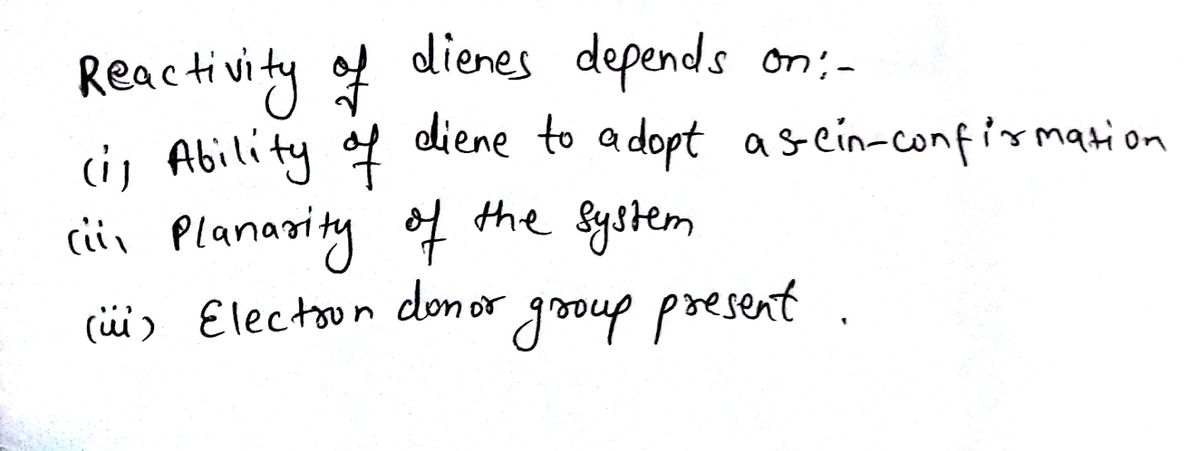 Reactivity of dienes depends on:-
(i) Ability of diene to adopt a s-cin-confirmation
(ii) Planarity of the system
(iii) Electron donor group present .